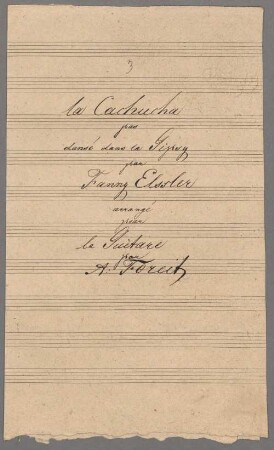 3
la Cachucha
pas
dansé dans la Gipsy
par
Fanny Elssler
arrangé
pour
le Guitare
par
A. Foreit